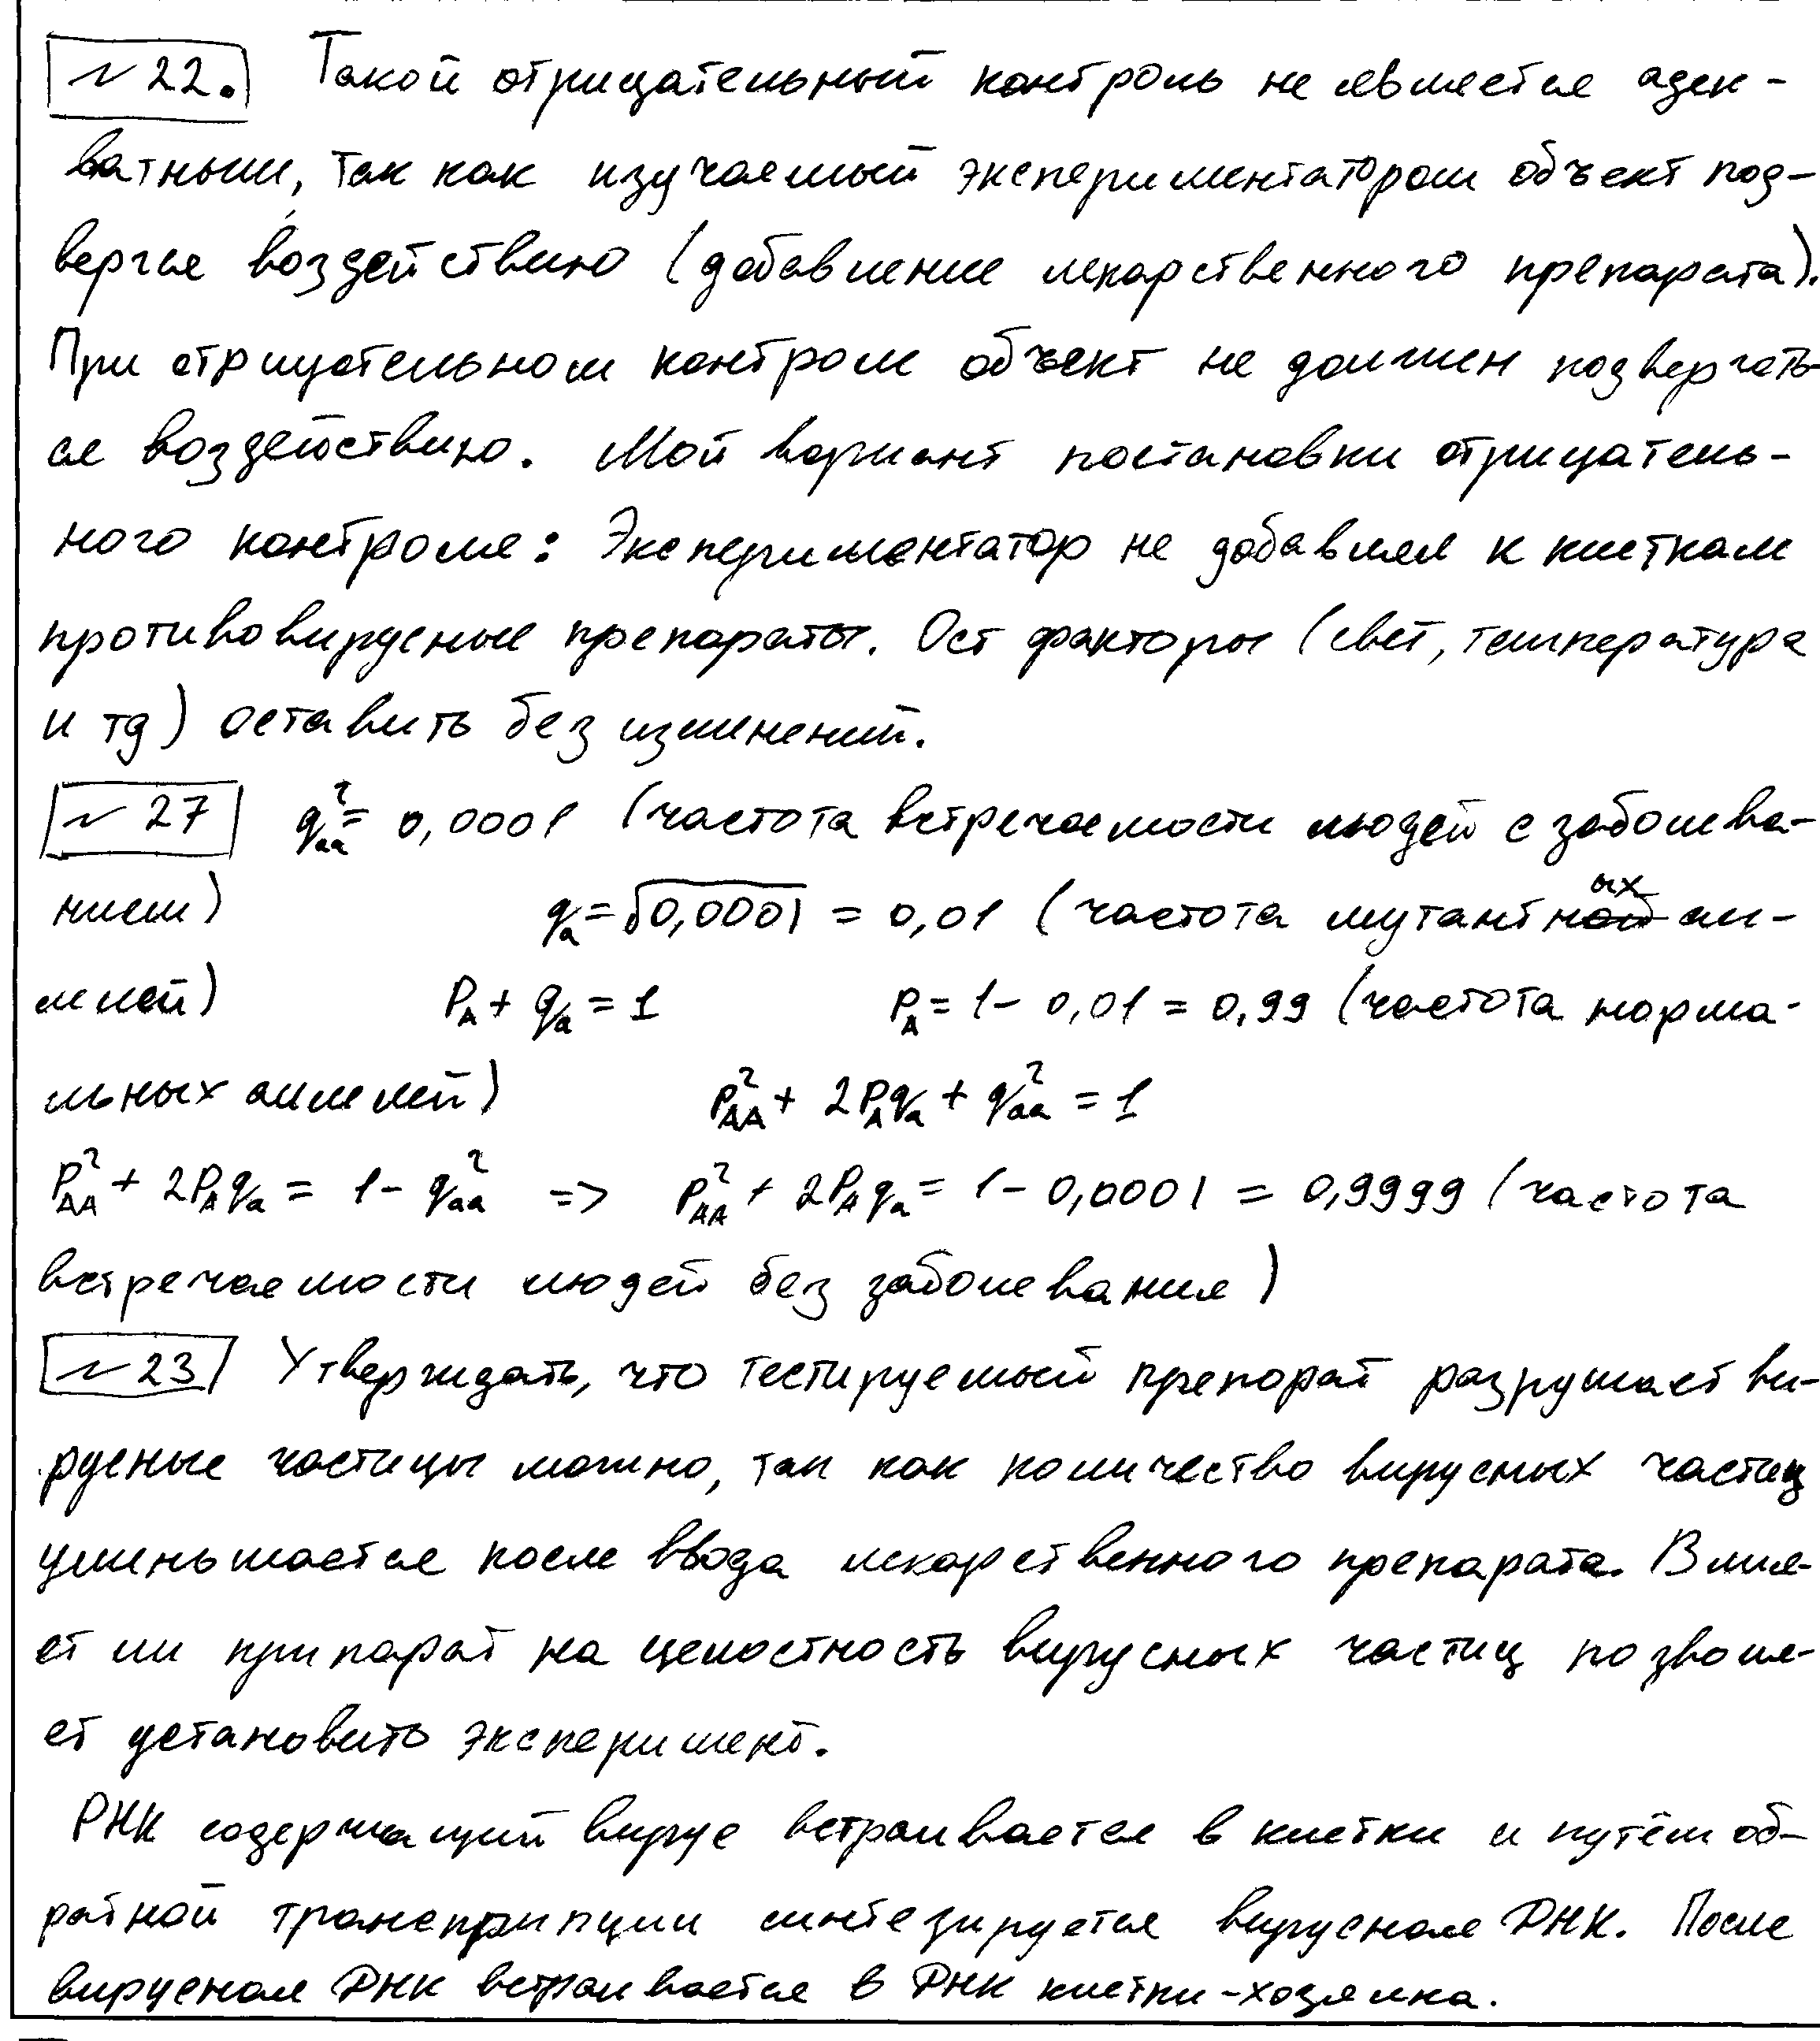 № 22. Такой отрицательный контроль не является адек-
ватным, так как изучаемый экспериментатором объект под-
вергся воздействию (добавление лекарственного препарата).
При отрицательном контроле объект не должен подвергать-
ся воздействию. Мой вариант постановки отрицатель-
ного контроля: Экспериментатор не добавляя к клеткам
противовирусные препараты. Ост факторы (свет, температура
и тд) оставить без изменений.
№ 27 q²aa = 0,0001 (частота встречаемости людей с заболева-
нием) qa = √0,0001 = 0,01 (частота мутантных ал-
лелей) PA + qa = 1 PA = 1 - 0,01 = 0,99 (частота норма-
льных аллелей) P²AA + 2PAqa + q²aa = 1
P²AA + 2PAqa = 1 - q²aa => P²AA + 2PAqa = 1 - 0,0001 = 0,9999 (частота
встречаемости людей без заболевания)
№ 23 Утверждать, что тестируемый препарат разрушает ви-
русные частицы можно, так как количество вирусных частиц
уменьшается после ввода лекарственного препарата. Влия-
ет ли припарат на целостность вирусных частиц позволя-
ет установить эксперимент.
РНК содержащий вирус встраивается в клетки и путём об-
ратной транскрипции синтезируется вирусная ДНК. После
вирусная ДНК встраивается в ДНК клетки-хозяина.